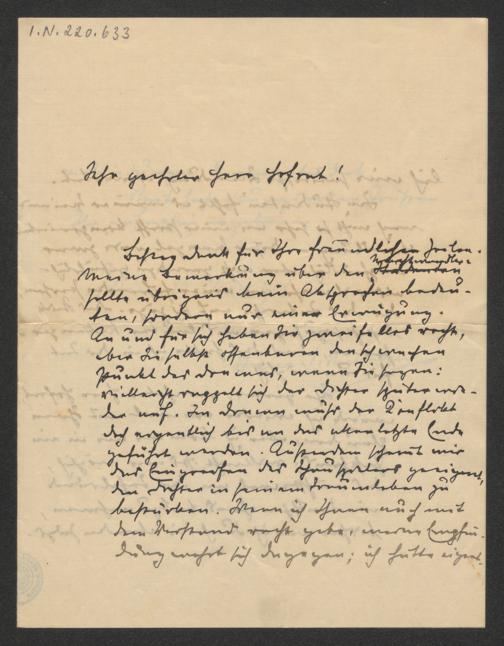 I.N. 220.633
Sehr geehrter Herr Hofrat!
Besten Dank für Ihre freundlichen Zeilen.
Meine Bemerkung über den
sollte übrigens kein Absprechen bedeu-
ten, sondern nur eine Erwägung.
An und für sich haben Sie zweifellos recht,
aber Sie selbst offenbaren den schwachen
Punkt des Dramas, wenn Sie sagen:
vielleicht rappelt sich der Dichter später wie-
der auf. Im Drama muß der Konflikt
doch eigentlich bis an das allerletzte Ende
geführt werden. Außerdem scheint mir
das Eingreifen des Schauspielers geeignet,
den Dichter in seinem Traumleben zu
bestärken. Wenn ich Ihnen auch mit
dem Verstand recht gebe, meine Empfin-
dung wehrt sich dagegen; ich hätte eigent-